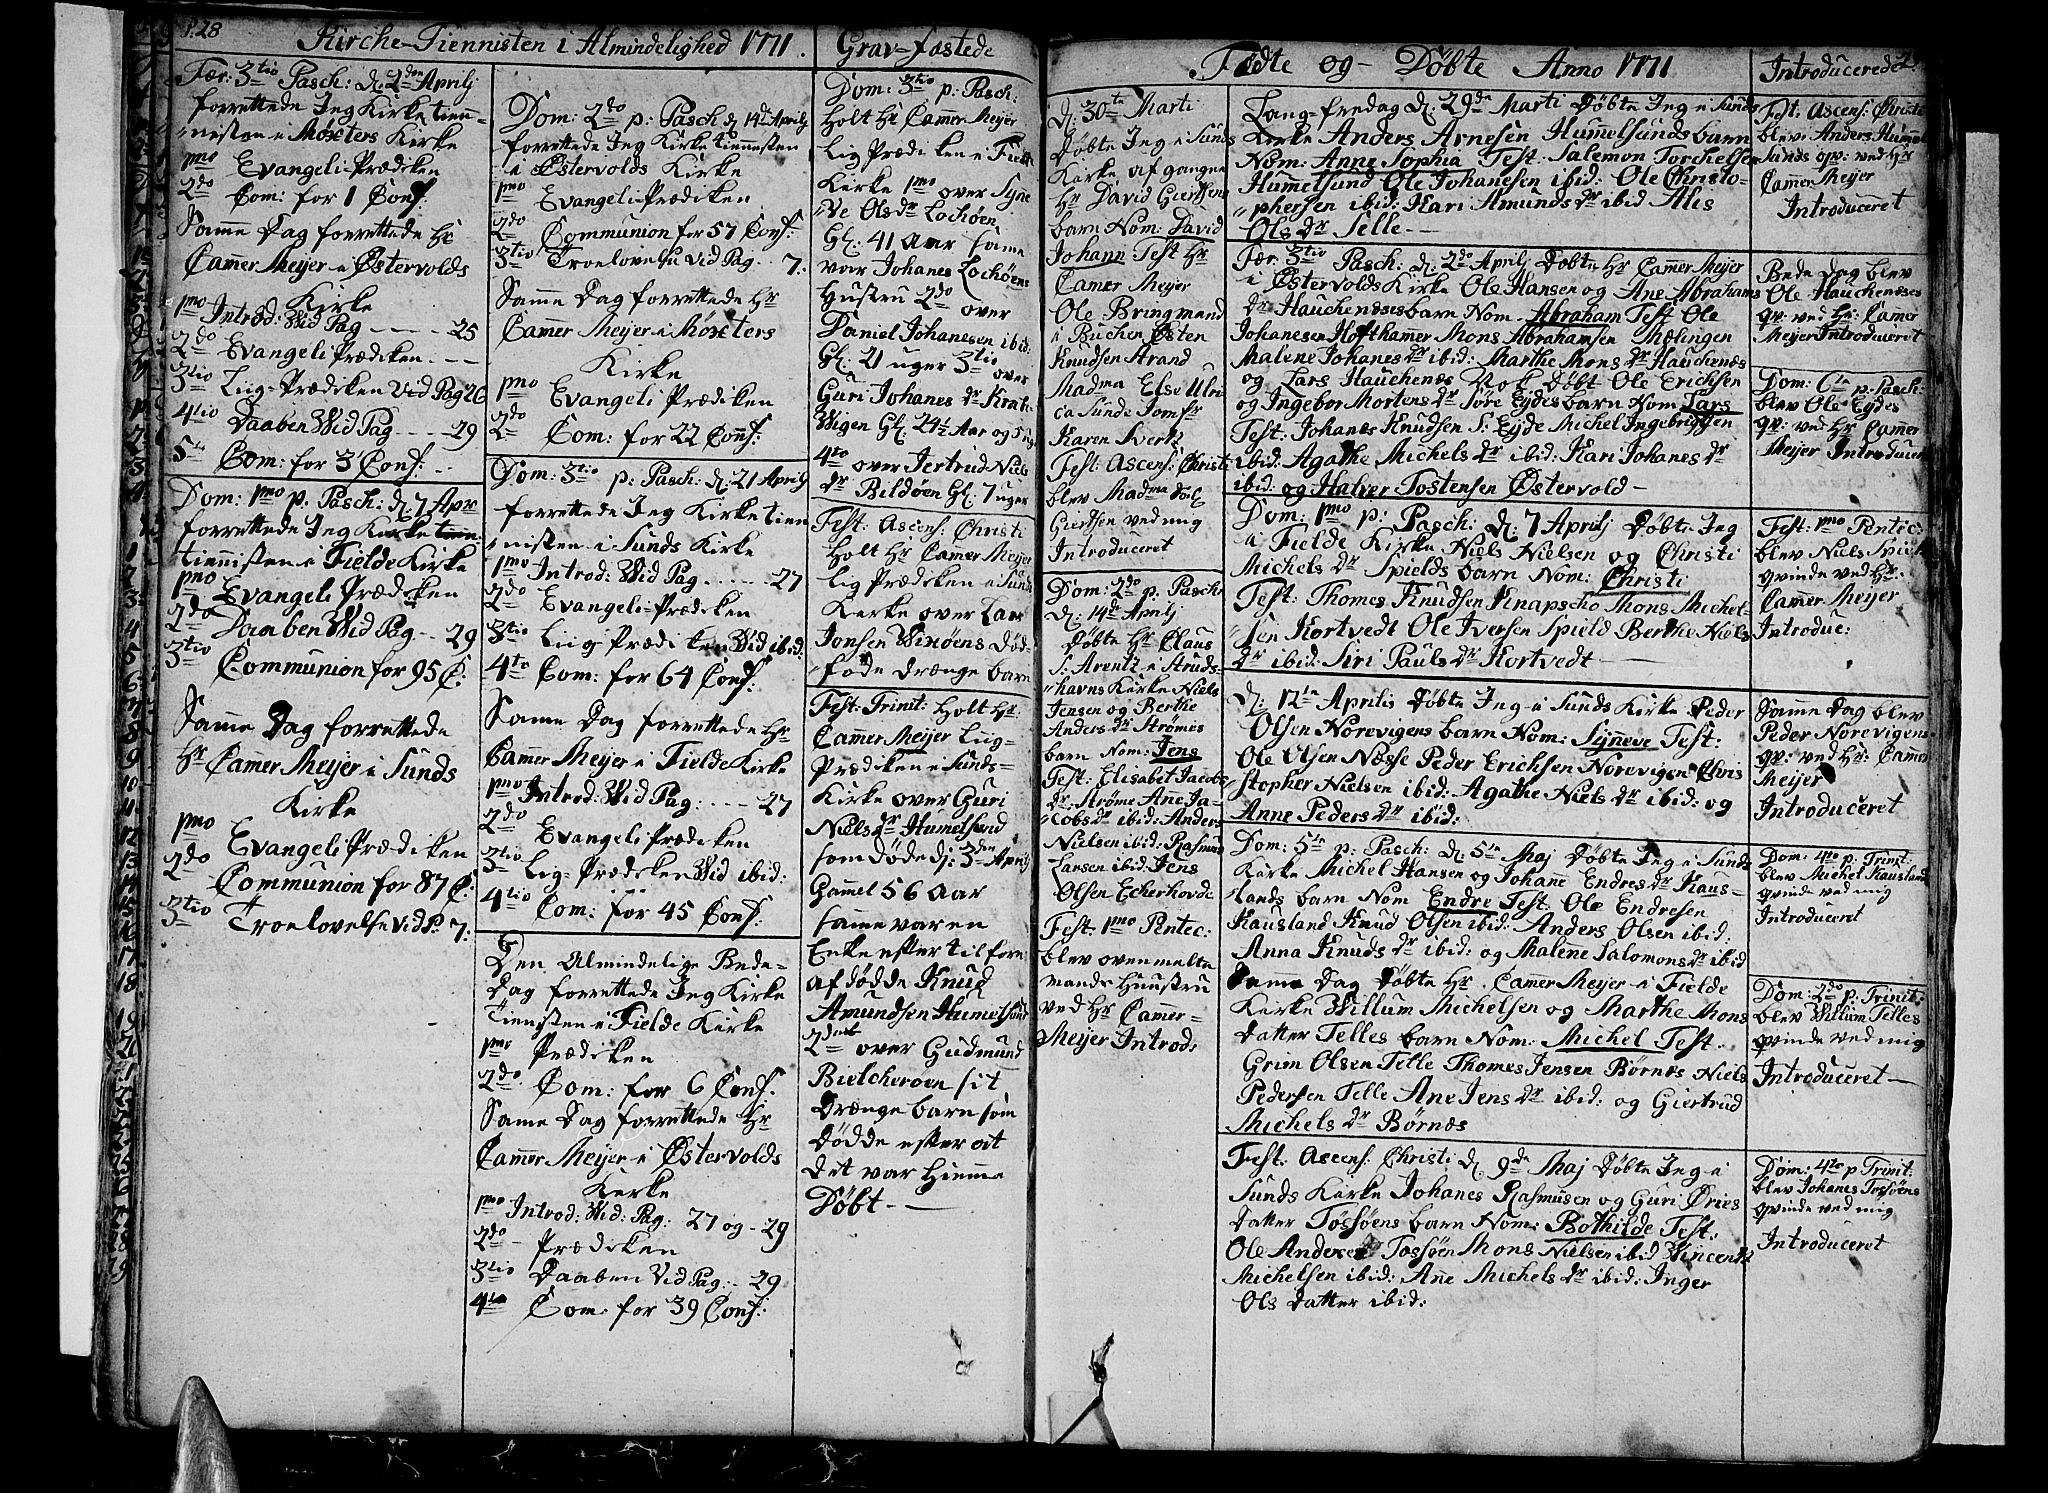 P. 28
Kirche-Tiennisten i Almindelighed 1771.
Fær: 3tio Pasch: d: 2den Aprilj
forrettede Jeg Kirke tien¬
nesten i Møxters Kirke
pmo Evangeli-Prædiken
2do Com: for 1 Conf:
Samme Dag forrettede Hr
Camer Meijer i Østervolds
Kirke
pmo Introd: Wid Pag ---- 25
2do Evangeli Prædiken. ---
3tio Liig-Prædiken Vid Pag 26
4tio Daaben Wid Pag ---- 29
5te Com: for 3 Conf: --
Dom: pmo p: Pasch: d: 7 Apr
forrettede Jeg Kirke tienn:
tiennisten i Fielde Kirke
pmo Evangeli Prædiken
2do Daaben Wid Pag -- 29
3tio Communion for 95 C:
Samme Dag forrettede
Hr Camer Meijer i Sunds
Kirke
pmo Evangeli Prædiken
2do Communion for 87 C:
3tio Troelovelse Vid P. 7.
Dom: 2do p: Pasch d 14de Aprilj
forrettede Jeg Kirke tiennesten
i Østervolds Kirke
pmo Evangeli-Prædiken
2do Communion for 57 Conf:
3tio Troelovelse Vid Pag -- 7.
Samme Dag forrettede Hr
Camer Meijer i Møxters
Kirke
pmo Evangeli Prædiken
2do Com: for 22 Conf:
Dom: 3tio p: Pasch: d: 21 Aprilj
forrettede Jeg Kirke tien
nisten i Sunds Kirke
pmo Introd: Wid Pag ----- 27
2do Evangeli-Prædiken
3tio Liig Prædiken Wid ibid:
4to Com: for 64 Conf:
Same Dag forrettede Hr
Camer Meijer i Fielde Kirke
pmo Introd: Wid Pag: ---- 27
2do Evangeli Prædiken
3tio Lig-Prædeken Wid ibid:
4tio Com: for 45 Conf:
Den Almindelige Bede-
Dag forrettede Jeg Kirke
Tiensten i Fielde Kirke
pmo Prædiken
2do Com: for 6 Conf.
Same Dag forrettede Hr
Camer Meijer i Østervolds
Kerke
pmo Introd: Wid: Pag: 27 og - 29
2do - Prædeken
3tio Daaben Vid Pag: - 29
4to Com: for 39 Conf:
Grav-fæstede
Dom: 3tio p: Pasch:
Holt Hr Camer Meijer
Lig Prædiken i Fielde
Kirke 1mo over Syne
ve Olsdr Lochøen
Gl: 41 Aar same
var Johanes Lochøens
Hustru 2do over
Daniel Johanesen ibid:
Gl: 21 uger 3tio over
Guri Johanes dr Krah
Wigen Gl: 24½ Aar og 5 ug
4to over Jertrud Niels
dr Bildøen Gl: 7 uger
Fest: Ascens: Christi
Holt Hr Camer Meijer
lig Prædeken i Sunds
Kerke over Lars
Jonsen Winøens Død-
føde drænge barn
Fest: Trinit: Holt Hr:
Camer Meijer Liig-
Prædeken i Sunds-
Kirke over Guri
Nielsdr Humelsund
som døde d: 3den Aprilj
Gammel 56 Aar
samme var en
Enke efter til forn
afdødde Knud
Amundsen Humelsund
over Gudmund
Bielcheroen sit
Drænge barn som
Dødde efter at
det var Hiemme
Døbt --
Fødte og Døbte Anno 1771
d: 30te Marti
Døbte Jeg i Sunds
Kirke af gangne
Hr David Giertsens
barn Nom: David
Johann Test Hr
Camer Meijer
Ole Bringmand
i Buchen Østen
Knudsen Strand
Madma Else Ulri
ca Sunde Jomfr
Karen
Fest: Ascens: Christi
blev Madma
Giertsen ved mig
Introduceret
Dom: 2do p: Pasch
d: 14de Aprilj
Døbte Hr Claus
S: Arentz i Struds-
havns Kirke Niels
Jensen og Berthe
Anders dr Strømes
barn Nom: Jens
Test: Elisabet Jacobs
dr Strøme Anne Ja-
cobsdr ibid: Anders
Nielsen ibid: Rasmus
Larsen ibid: Jens
Olsen Eckerhovde
Fest. 1mo Pentec:
blev ovenmelte
mands Huustru
ved Hr Camer-
Meijer Introd:
Lang-fredag d: 29de Marti Døbte Jeg i Sunds
Kirke Anders Arnesen Hummelsunds barn
Nom: Anne Sophia Test. Salemon Torchelsen
Hummelsund Ole Johanesen ibid: Ole Christo-
phersen ibid: Kari Amunds dr ibid Alis
Ols dr Telle. --
Fær. 3tio Pasch: d: 2do Aprilj Døbte Hr Camer Meijer
i Østervolds Kirke Ole Hansen og Ane Abrahams
dr Hauchenæses barn Nom. Abraham Test Ole
Johanesen Hofthamer Mons Abrahamsen
Malene Johanes dr ibid: Marthe Mons dr Hauchenæs
og Lars Hauchenæs Nok Døbt Ole Erichsen
og Ingebor Mortens dr Søre Eydes barn Nom Lars
Test: Johanes Knudsen S: Eyde Michel Ingebrigtsen
ibid: Agathe Michels dr ibid: Kari Johanes dr
ibid: og Halver Tostensen Østervold -
Dom: 1mo p: Pasch: d: 7 Aprilj Døbte Jeg
i Fielde Kirke Niels Nielsen og Christi
Michels dr Spields barn Nom: Christi
Test: Thomes Knudsen Knapscho Mons Michel-
sen Kortvedt Ole Iversen Spield Berthe Niels
dr ibid: Siri Pauls dr Kortvedt --
d: 12te Aprilis Døbte Jeg i Sunds Kirke Peder
Olsen Norevigens barn Nom: Synneve Test:
Ole Olsen Næsse Peder Erichsen Norevigen Chris
stopher Nielsen ibid: Agathe Niels dr ibid: og
Anne Peders dr ibid:
Dom: 5te p: Pasch: d: 5te Maj Døbte Jeg i Sunds
Kirke Michel Hansen og Johanne Endres dr Kaus-
lands barn Nom Endre Test: Ole Endresen
Kausland Knud Olsen ibid: Anders Olsen ibid:
Anna Knuds dr ibid: og Malene Salomons dr ibid
Same Dag Døbte Hr. Camer Meijer i Fielde
Kerke Willum Michelsen og Marthe Mons
Datter Telles barn Nom: Michel Test.
Grim Olsen Telle Thomes Jensen Børnæs Niels
Pedersen Telle Ane Jens dr ibid: og Giertrud
Michels dr Børnæs
Fest. Ascens. Christi d: 9de Maj Døbte Jeg i
Sunds Kerke Johanes Rasmusen og Guri Øries
Datter Tøssøens barn Nom: Bothilde Test:
Ole Andersen Tossøen Mons Nielsen ibid Vincentz
Michelsen ibid: Ane Michels dr ibid: Inger
Ols Datter ibid:
Introducerede
Fest: Ascens: Christi
blev Anders Hummel
Sunds qv: ved Hr
Camer Meijer
Introduceret
Bede Dag blev
Ole Hauchenæses
qv: ved Hr: Camer
Meijer Introduceret
Dom: 6te p: Pasch:
blev Ole Eydes
qv: ved Hr Camer
Meijer Introducer
Fest: 1mo Pentec:
blev Niels Spields
qvinde ved Hr:
Camer Meijer
Introduc:
Samme Dag blev
Peder Norevigens
qv: ved Hr: Camer
Meijer
Introduceret
Dom: 4to p: Trinit:
blev Michel Kauslands
qvinde ved mig
Introduceret
Dom: 2do p: Trinit:
blev Willum Telles
qvinde ved mig
Introduceret --
Dom: 4to p Trinit:
blev Johanes Tossøens
qvinde ved mig
Introduceret